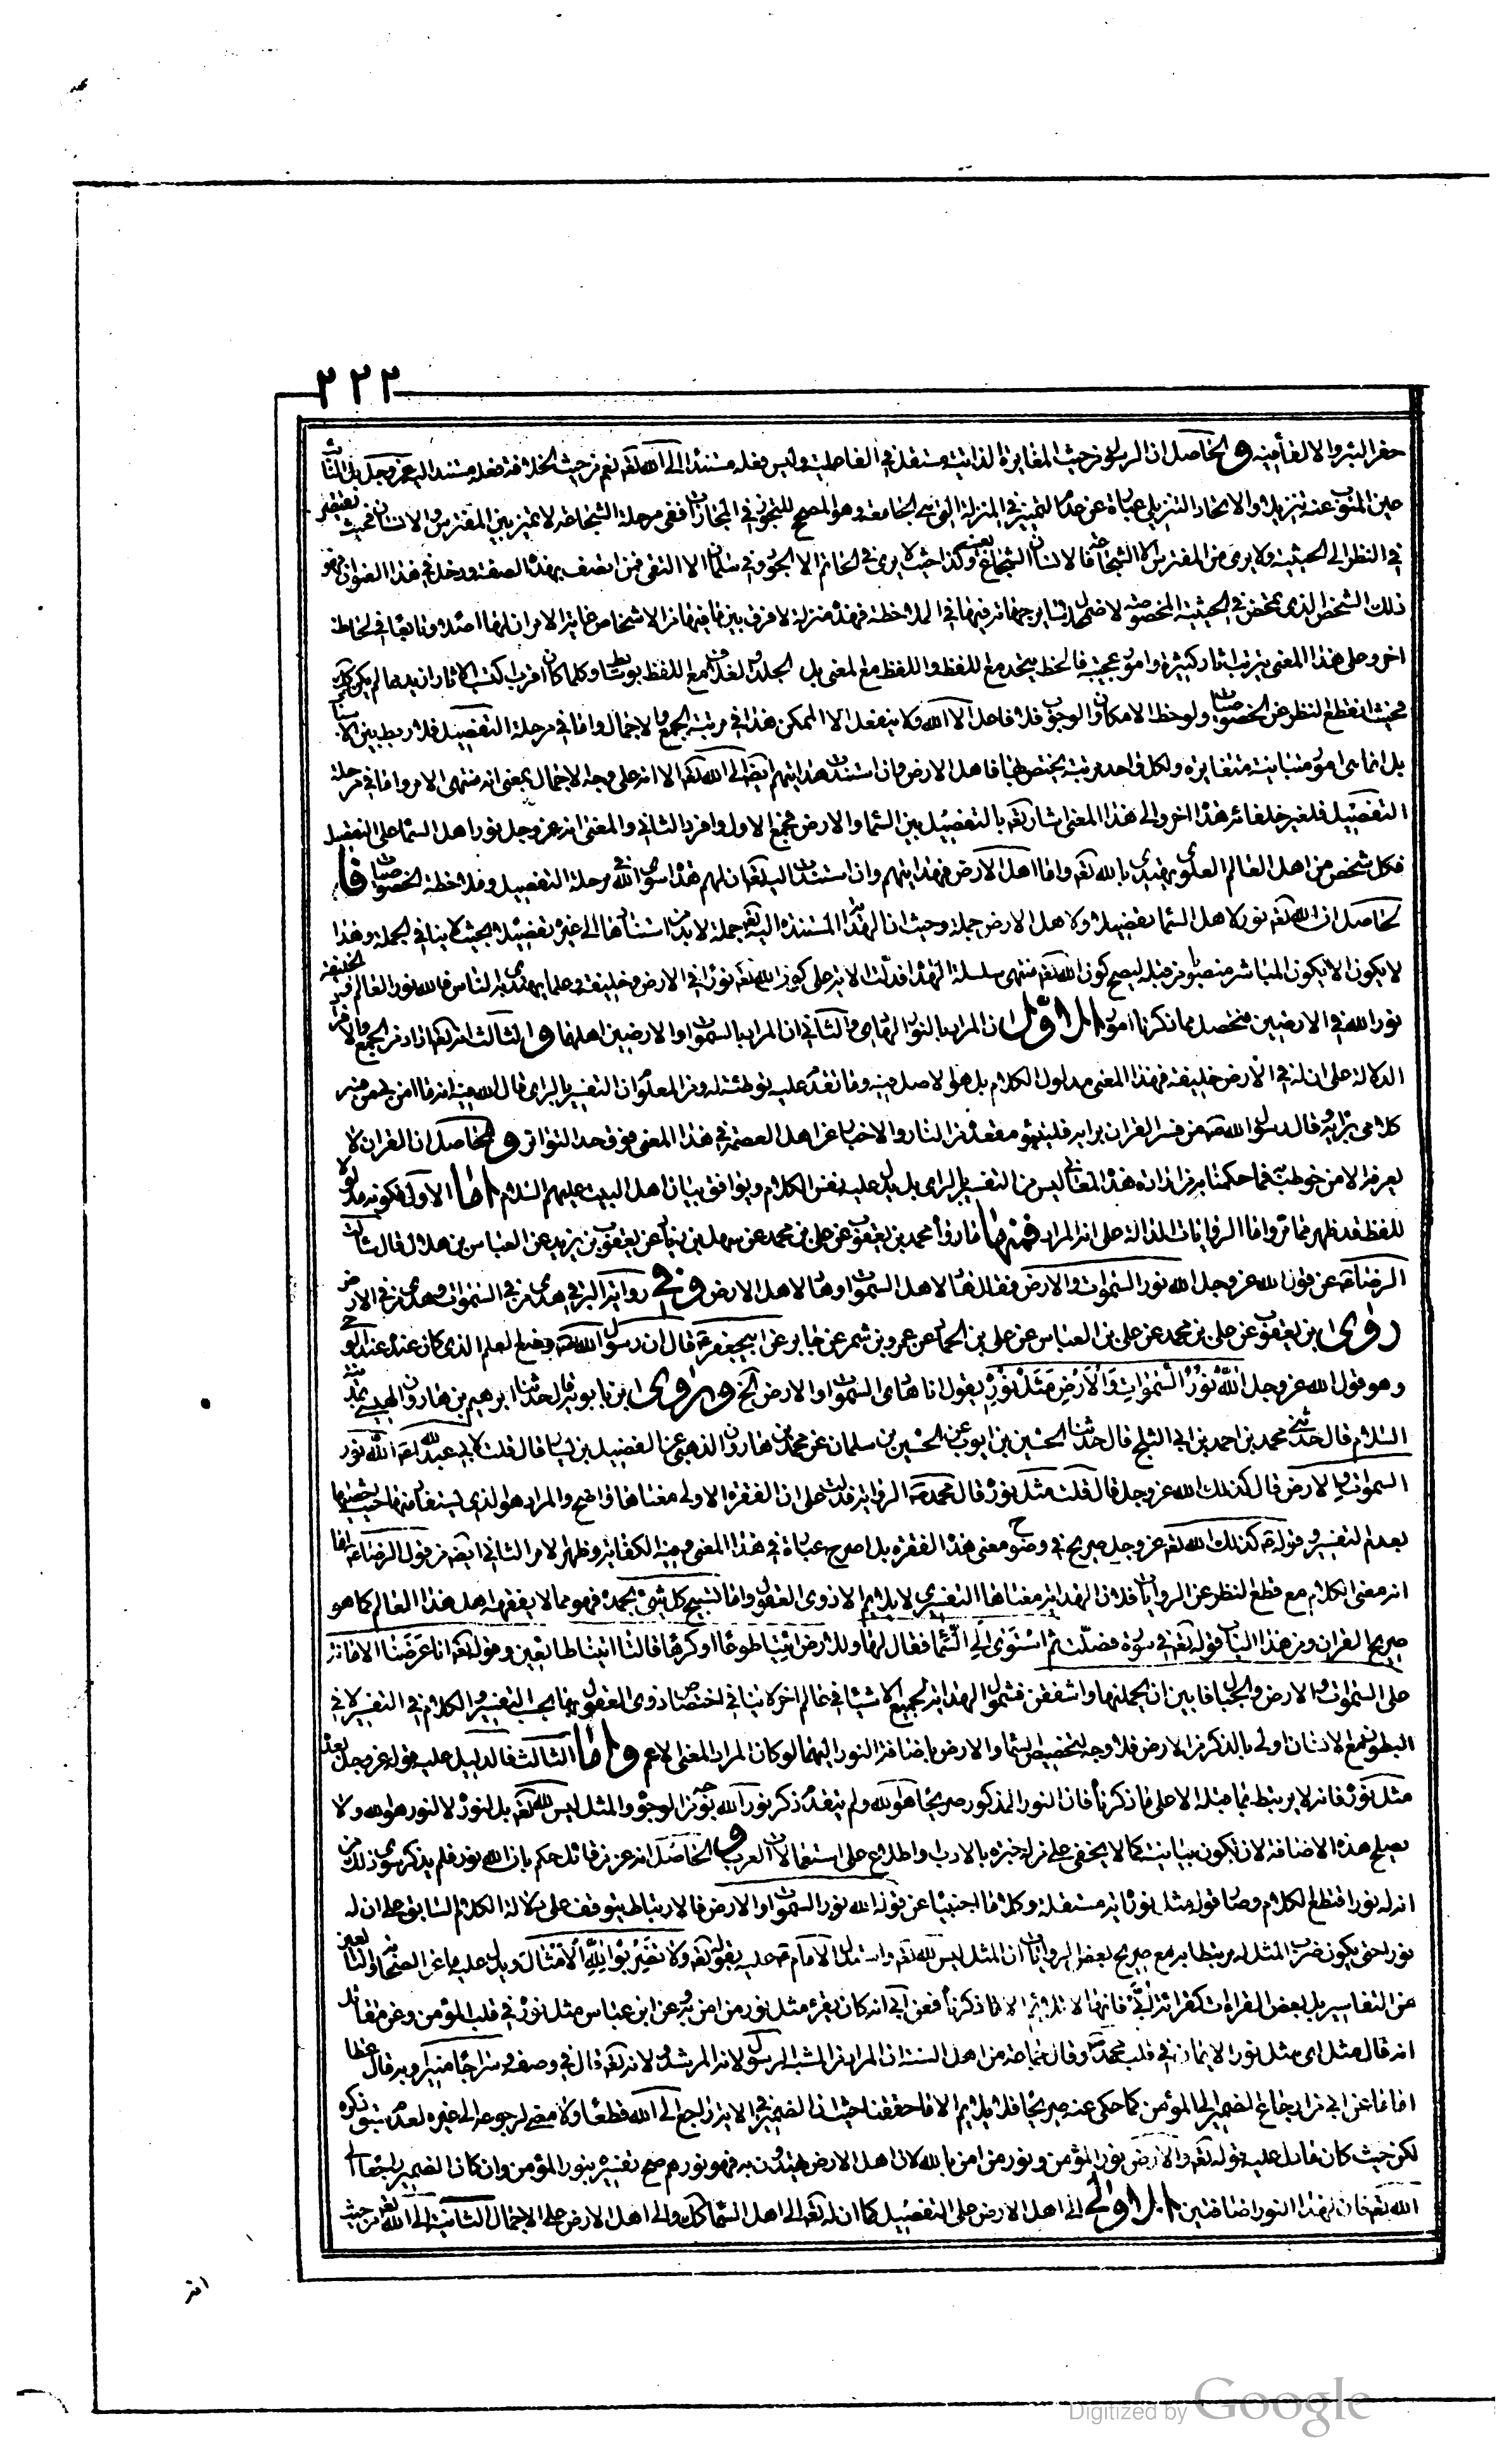 ٢٢٢
حفر البئر والالفاء فيه والحاصل ان الرسول من حيث المغايرة الذاتية مستقل في الفاعلية وليس فعله مستندا الى الله تعه نعم من حيث الخلافة ففعله مستند اليه عز وجل بل المناب
حين المنوب عنه تنزيلا والاتحاد التنزيلى عبارة عن عدم التميز في المنزلة التي هي الجامعة وهو المصحح للتجوز في المجازات ففي مرحلة الشجاعة لا تميز بين المفترس والانسان فحيث يقتصر
في النظر الى الحيثية ولا يرى من المفترس الا الشجاعة فالانسان الشجاع وكذا حيث لا يرى في الحاتم الا الجود وفي سلمان الا التقى فمن اتصف بهذه الصفة ودخل في هذا العنوان فهو
ذلك الشخص الذى تمخض في الحيثية المخصوصة لاضمحلال جهاته فيها في الملاحظة فهذه منزلة لا فرق بينها فيها من الاشخاص غاية الامر ان لها اصلا وتابعا في لحاظ
اخر وعلى هذا المعنى يترتب اثار كثيرة وامور عجيبة فالخط يتحد مع اللفظ واللفظ مع المعنى بل الجلد والغلاف مع اللفظ بوسائط وكلما كان اقرب اكتسب الاثار ازيد مما لم يكن كذلك
فحيث انقطع النظر عن الخصوصيات ولوحظ الامكان والوجوب فلا فاعل الا الله ولا ينفعل الا الممكن هذا في مرتبة الجمع والاجمال واما في مرحلة التفصيل فلا ربط بين الاسباب
بل انما هى امور متباينة متغايرة ولكل واحد مرتبة يختص بها فاهل الارض وان استندت هدايتهم ايضه الى الله تعه الا انه على وجه الاجمال بمعنى انه منتهى الامر واما في مرحلة
التفصيل فلغير خلفائه هذا اخر والى هذا المعنى اشار تعه بالتفصيل بين السماء والارض فجمع الاول وافرد الثاني والمعنى انه عز وجل نور اهل السماء على التفصيل
فكل شخص من اهل العالم العلوى يهتدى بالله تعه واما اهل الارض فهدايتهم وان استندت اليه تعه لكن لهم هداة سوى الله في مرحلة التفصيل وملاحظة الخصوصيات فا
لحاصل ان الله تعه نور لاهل السماء تفصيلا ولاهل الارض جملة وحيث ان الهداية المستندة اليه تعه جملة لا بد من استنادها الى غيره تفصيلا بحيث لا ينافي الجملة وهذا
لا يكون الا بكون المباشر منصوبا من قبله ليصح كون الله تعه منتهى سلسلة الهداة فدلت الاية على كون لله تعه نورا في الارض وخليفة وعلما يهتدى به الناس فالله نور العالم والخليفة
نور الله في الارضين فتحصل مما ذكرنا امور الاول ان المراد بالنور الهادى والثاني ان المراد بالسموات والارضين اهلها والثالث انه تعه اراد من الجمع والافراد
الدلالة على ان له في الارض خليفة فهذا المعنى مدلول الكلام بل هو الاصل فيه وما تقدم عليه توطئة له ومن المعلوم ان التفسير بالراى قال الله فيه انه ما امن بى من فسر
كلامى برايه وقال رسول الله ص من فسر القران برايه فليتبوء مقعده من النار والاخبار عن اهل العصمة في هذا المعنى فوق حد التواتر والحاصل ان القران لا
يعرفه الا من خوطب به فما حكمنا به من ارادة هذه المعاني ليس من التفسير بالراى بل يدل عليه نفس الكلام ويوافق بيان اهل البيت عليهم السلام اما الاول فكونه مدلولا
للفظ قد ظهر مما مر واما الروايات الدالة على انه المراد فمنها ما رواه محمد بن يعقوب عن على بن محمد عن سهل بن زياد عن يعقوب بن يزيد عن العباس بن هلال قال سالت
الرضا ع عن قول الله عز وجل الله نور السموات والارض فقال هاد لاهل السموات وهاد لاهل الارض وفي رواية البرقي هدى من في السموات وهدى من في الارض
روى ابن يعقوب عن على بن محمد عن على بن العباس عن على بن الحماد عن عمرو بن شمر عن جابر عن ابيجعفر ع قال ان رسول الله ص وضع العلم الذى كان عنده عند الوصى
وهو قول الله عز وجل الله نور السموات والارض مثل نوره يقول انا هادى السموات والارض الخ وروى ابن بابويه قال حدثنا ابرهيم بن هارون الهيسى بمدينة
السلام قال حدثنى محمد بن احمد بن ابى الثلج قال حدثنا الحسين بن ايوب عن الحسين بن سلمان عن محمد بن هارون الذهبي عن الفضيل بن يسار قال قلت لابى عبد الله ع الله نور
السموات والارض قال كذلك الله عز وجل قال قلت مثل نوره قال محمد ص الرواية دلت على ان الفقرة الاولى معناها واضح والمراد هو الذى يستفاد منها حيث خصها
بعدم التفسير وقوله ع كذلك الله تعه عز وجل صريح في وضوح معنى هذه الفقرة بل اصرح عبارة في هذا المعنى وفيه الكفاية وظهر الامر الثاني ايضه من قول الرضا ع اما
انه معنى الكلام مع قطع النظر عن الروايات فلان الهداية معناها التفسيرى لا يلايم الا ذوى العقول واما تسبيح كل شئ بحمده فهو مما لا يفقهه اهل هذا العالم كما هو
صريح القران ومن هذا الباب قوله تعه في سورة فصلت ثم استوى الى السماء فقال لها وللارض ائتيا طوعا او كرها قالتا اتينا طائعين وقوله تعه انا عرضنا الامانة
على السموات والارض والجبال فابين ان يحملنها واشفقن فشمول الهداية لجميع الاشياء في عالم اخر لا ينافي اختصاص ذوى العقول بها بحسب التفسير والكلام في التفسير لا في
البطون مع الانسان اولى بالذكر من الارض فلا وجه لتخصيص السماء والارض باضافة النور اليهما لو كان المراد المعنى الاعم واما الثالث فالدليل عليه قوله عز وجل بعده
مثل نوره فانه لا يرتبط بما قبله الا على ما ذكرنا فان النور المذكور صريحا هو الله ولم يتقدم ذكر نور الله بوجه من الوجوه والمثل ليس لله تعه بل لنوره لا لنور هو الله ولا
يصلح هذه الاضافة لان تكون بيانية كما لا يخفى على من له خبرة بالادب واطلاع على استعمالات العرب والحاصل انه عز من قائل حكم بان الله نور فلم يذكر سوى ذلك من
ان له نورا فنقطع الكلام وصار قوله مثل نوره اية مستقلة وكلاما اجنبيا عن قوله الله نور السموات والارض فالارتباط يتوقف على دلالة الكلام السابق على ان له
نور حتى يكون ضرب المثل له مرتبطا به مع صريح بعض الروايات ان المثل ليس لله تعه واستدل الامام ع عليه بقوله تعه ولا تضربوا لله الامثال ويدل عليه ما عن الصحابة والتابعين
من التفاسير بل بعض القراءات كقراءة ابي فانها لا تلايم الا ما ذكرنا فعن ابي انه كان يقرء مثل نور من امن به وعن ابن عباس مثل نوره في قلب المؤمن وعن مقاتل
انه قال مثل اى مثل نور الايمان في قلب محمد ص وقال جماعة من اهل السنة ان المراد من المشبه الرسول لانه المرشد ولانه تعه قال في وصفه وسراجا منيرا وبه قال عطا
اما ما عن ابى من ارجاع الضمير الى المؤمن كما حكى عنه صريحا فلا يلايم الا ما حققنا حيث ان الضمير في الاية راجع الى الله قطعا ولا معنى لرجوعه الى غيره لعدم سبق ذكره
لكن حيث كان ما دل عليه قوله تعه والارض نور المؤمن ونور من امن بالله لان اهل الارض يهتدون به فهو نورهم صح تفسيره بنور المؤمن وان كان الضمير راجعا الى
الله تعه فان لهذا النور اضافتين الاولى الى اهل الارض على التفصيل كما ان له تعه الى اهل السماء كك والى اهل الارض على الاجمال الثانية الى الله تعه من حيث
انه
Digitized by Google